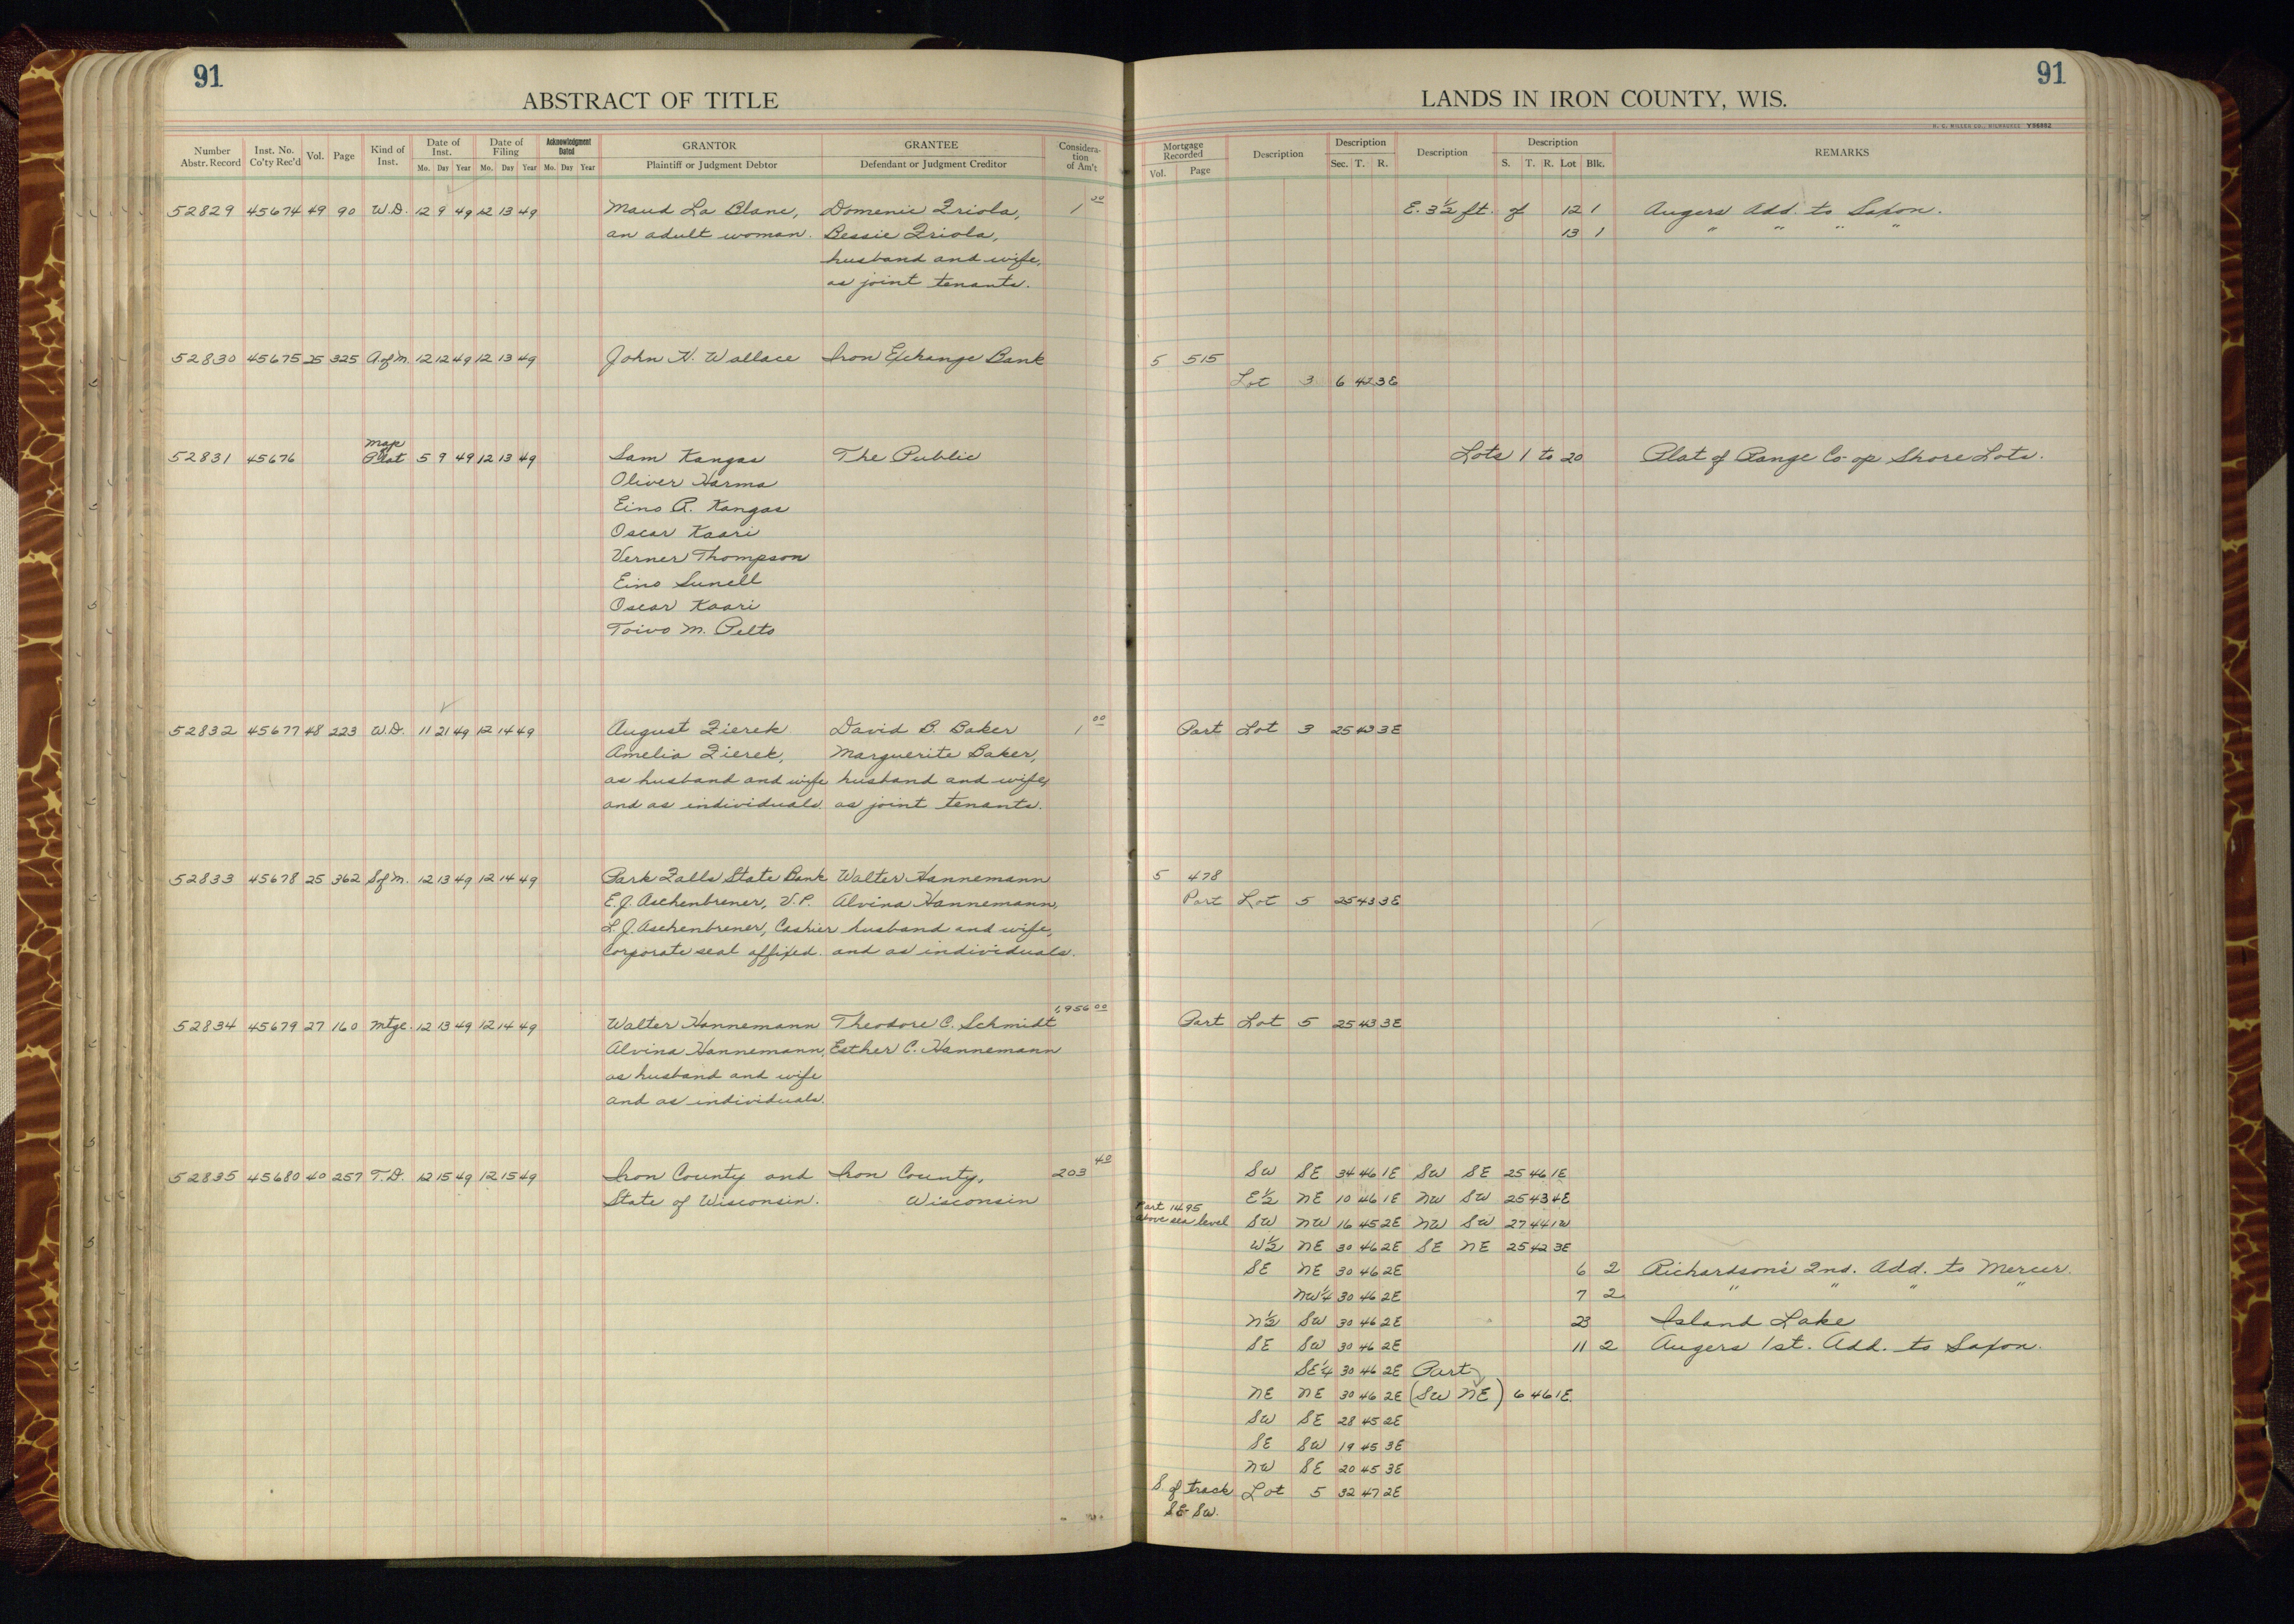 91
91
ABSTRACT OF TITLE
LANDS IN IRON COUNTY, WIS.
H. C. MILLER CO., MILWAUKEE
Number Abstr. Record Inst. No. Co'ty Rec'd Vol. Page Kind of Inst. Date of Inst. Mo. Day Year Date of Filing Mo. Day Year Acknowledgment Dated Mo. Day Year GRANTOR Plaintiff or Judgment Debtor GRANTEE Defendant or Judgment Creditor Considera-tion of Am't
Mortgage Recorded Vol. Page Description Description Sec. T. R. Description Description S. T. R. Lot Blk. REMARKS
52829 45674 49 90 W.D. 12 9 49 12 13 49 Maud La Blanc, Domenic Friola, 1 00 E. 3½ ft. of 12 1 Augers Add. to Saxon.
an adult woman. Bessie Friola, 13 1 " " " "
husband and wife,
as joint tenants.
52830 45675 25 325 A.of M. 12 12 49 12 13 49 John N. Wallace Iron Exchange Bank 5 515
Lot 3 6 42 3E
52831 45676 Map Plat 5 9 49 12 13 49 Sam Kangas The Public Lots 1 to 20 Plat of Range Co-op Shore Lots.
Oliver Harma
Eino A. Kangas
Oscar Kaari
Verner Thompson
Eino Sunell
Oscar Kaari
Toivo M. Pelto
52832 45677 48 223 W.D. 11 21 49 12 14 49 August Zierek David B. Baker 1 00 Part Lot 3 25 43 3E
Amelia Zierek, Marguerite Baker,
as husband and wife husband and wife,
and as individuals. as joint tenants.
52833 45678 25 362 S.of M. 12 13 49 12 14 49 Park Falls State Bank Walter Hannemann 5 478
E.J. Aschenbrener, V.P. Alvina Hannemann, Part Lot 5 25 43 3E
L.J. Aschenbrener, Cashier husband and wife,
Corporate seal affixed. and as individuals.
52834 45679 27 160 Mtge. 12 13 49 12 14 49 Walter Hannemann Theodore C. Schmidt 1,956 00 Part Lot 5 25 43 3E
Alvina Hannemann, Esther C. Hannemann
as husband and wife
and as individuals.
52835 45680 40 257 T.D. 12 15 49 12 15 49 Iron County and Iron County, 203 40 SW SE 34 46 1E SW SE 25 46 1E
State of Wisconsin. Wisconsin E½ NE 10 46 1E NW SW 25 43 4E
Part 1495 above sea level SW NW 16 45 2E NW SW 27 44 1W
W½ NE 30 46 2E SE NE 25 42 3E
SE NE 30 46 2E 6 2 Richardson's 2nd. Add. to Mercer.
NW¼ 30 46 2E 7 2 " " " "
N½ SW 30 46 2E 23 Island Lake
SE SW 30 46 2E 11 2 Augers 1st. Add. to Saxon.
SE¼ 30 46 2E Part
NE NE 30 46 2E (SW NE) 6 46 1E.
SW SE 28 45 2E
SE SW 19 45 3E
NW SE 20 45 3E
S. of track Lot 5 32 47 2E
SE SW.